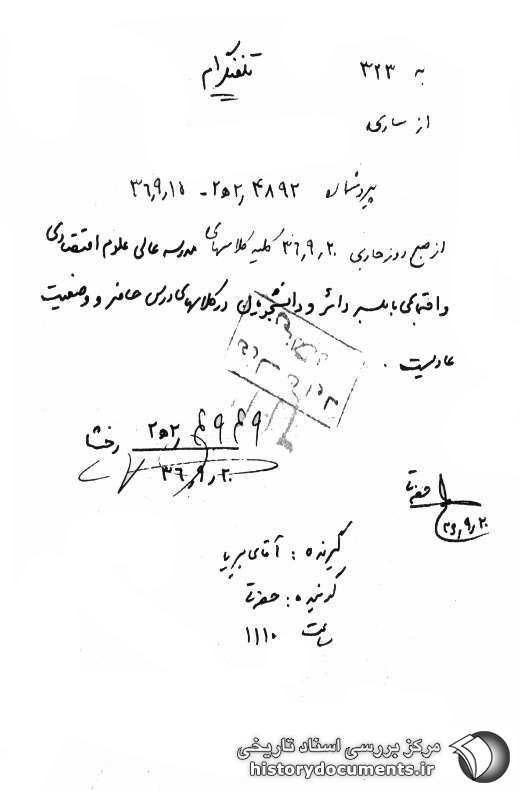 تلفنگرام
به ۳۲۳
از ساری
پیرو شماره ۴۸۹۲/۲ﻫ۲ - ۳۶/۹/۱۵
از صبح روز جاری ۳۶/۹/۲۰ کلیه کلاسهای مدرسه عالی علوم اقتصادی
و اجتماعی بابلسر دائر و دانشجویان در کلاسهای درس حاضر و وضعیت
عادیست .
۲ﻫ۲ رخشا
۳۶/۹/۲۰
۳۶/۹/۲۰
گیرنده : آقای
گوینده :
ساعت ۱۱۱۰
مرکز بررسی اسناد تاریخی
historydocuments.ir